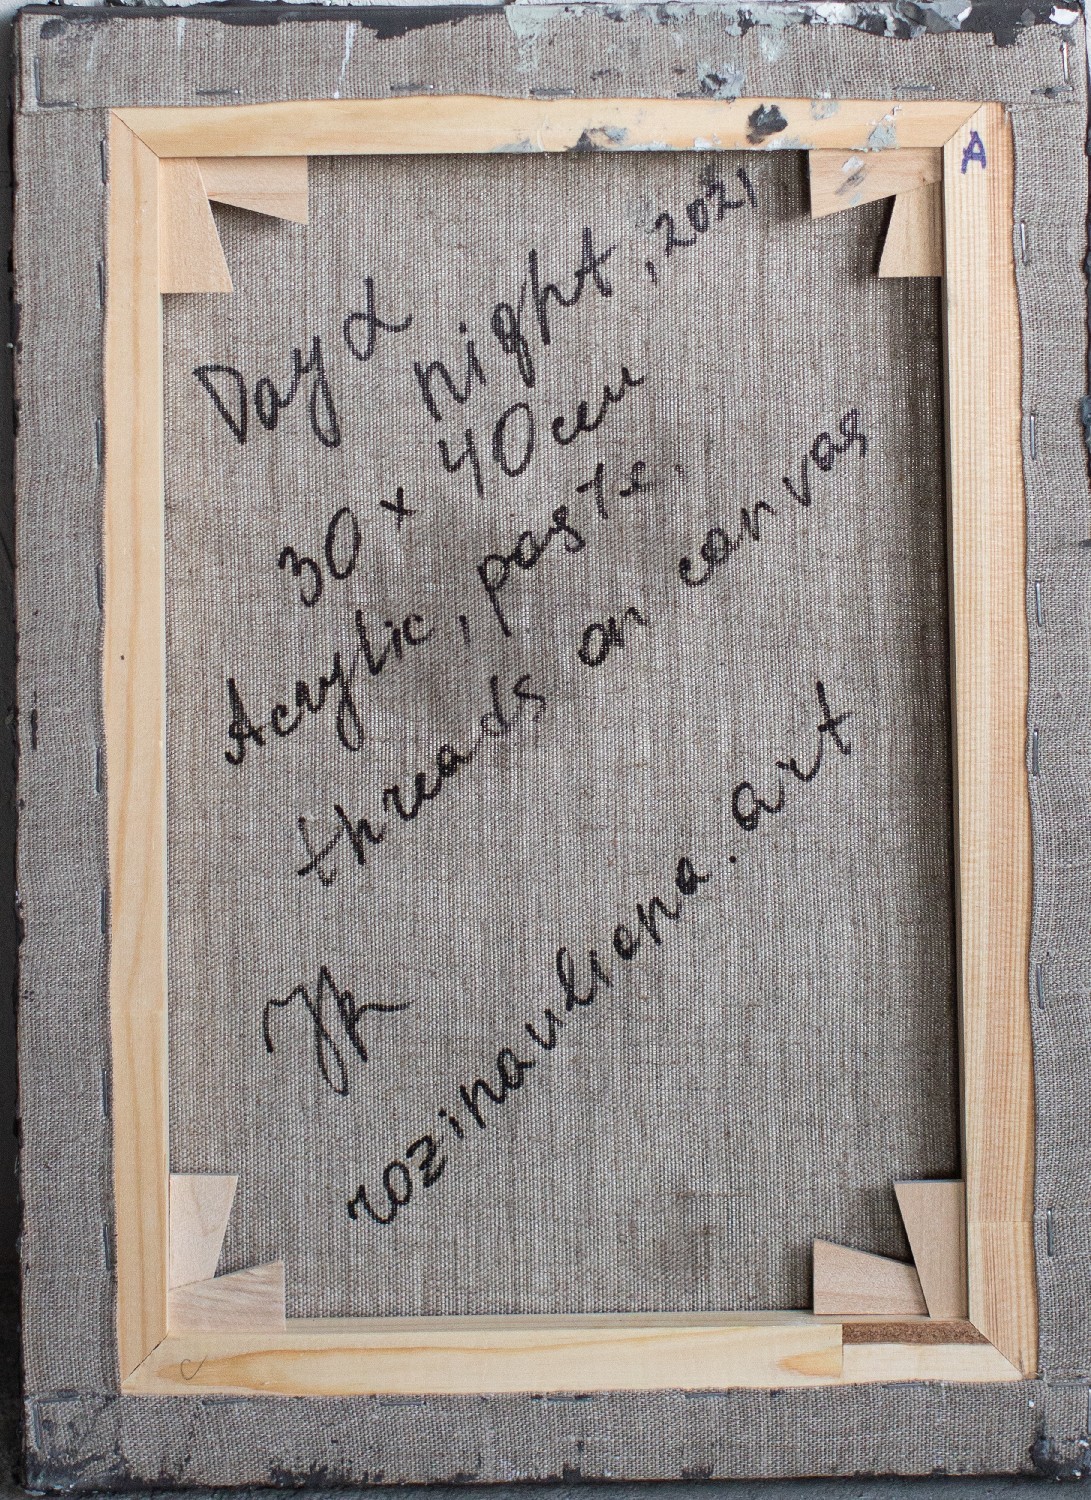 Day &
night, 2021
30 x 40 см
Acrylic, paste,
threads on canvas
rozinauliana.art
A
C